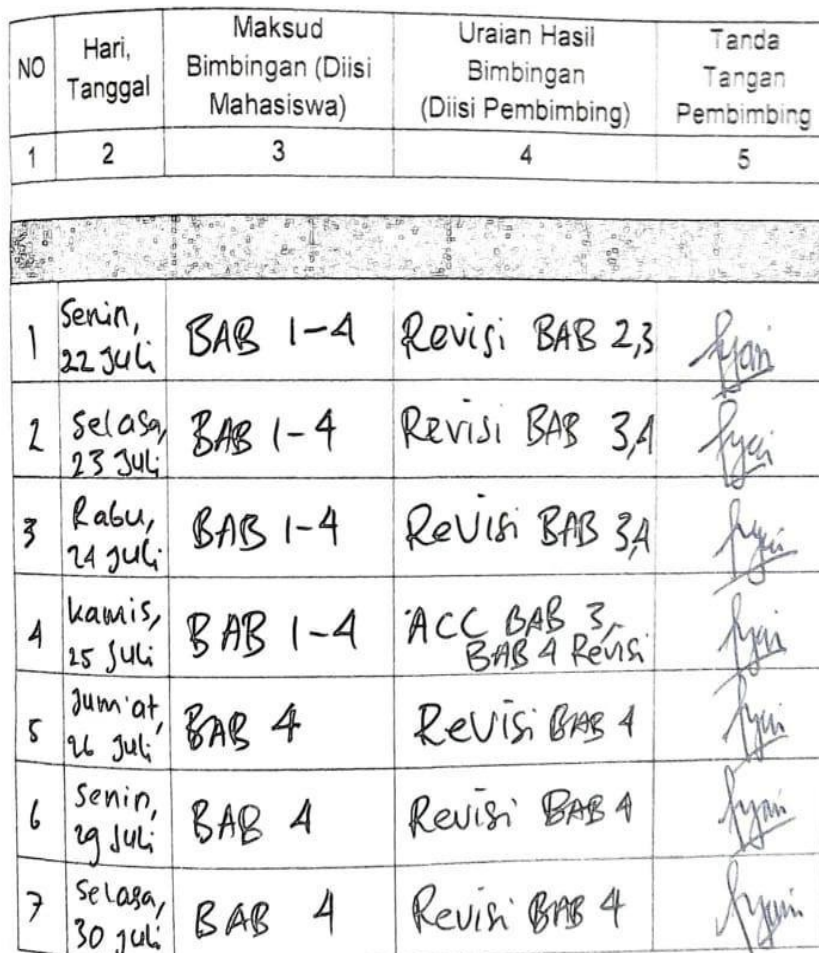 NO
Hari,
Tanggal
Maksud
Bimbingan (Diisi
Mahasiswa)
Uraian Hasil
Bimbingan
(Diisi Pembimbing)
Tanda
Tangan
Pembimbing
1 2 3 4 5
1
Senin,
22 Juli
BAB 1-4
Revisi BAB 2,3
2
Selasa,
23 Juli
BAB 1-4
Revisi BAB 3,4
3
Rabu,
24 Juli
BAB 1-4
Revisi BAB 3,4
4
Kamis,
25 Juli
BAB 1-4
ACC BAB 3,
BAB 4 Revisi
5
Jum'at,
26 Juli
BAB 4
Revisi BAB 4
6
Senin,
29 Juli
BAB 4
Revisi BAB 4
7
Selasa,
30 Juli
BAB 4
Revisi BAB 4